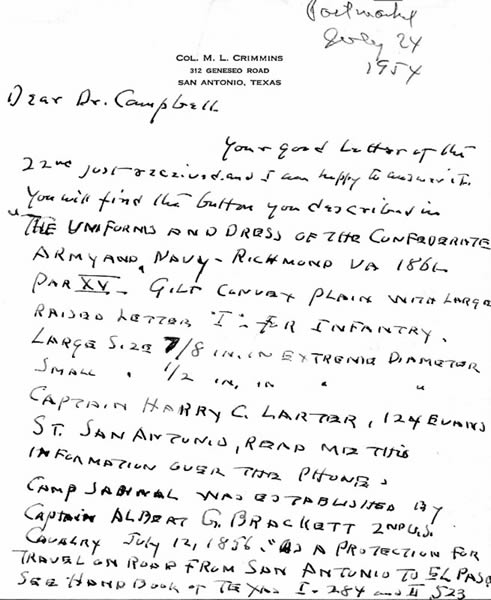 Postmarked
July 24
1954
COL. M. L. CRIMMINS
312 GENESEO ROAD
SAN ANTONIO, TEXAS
Dear Dr. Campbell
Your good letter of the
22nd just received and I am happy to answer it.
You will find the button you described in
"THE UNIFORMS AND DRESS OF THE CONFEDERATE
ARMY AND NAVY - RICHMOND VA 1861
PAR XV - GILT CONVEX PLAIN WITH LARGE
RAISED LETTER "I" - FOR INFANTRY.
LARGE SIZE 7/8 IN. IN EXTREME DIAMETER
SMALL " 1/2 IN. IN " "
CAPTAIN HARRY C. LARTER, 124 EVANS
ST. SAN ANTONIO, READ ME THIS
INFORMATION OVER THE PHONE.
CAMP SABINAL WAS ESTABLISHED BY
CAPTAIN ALBERT G. BRACKETT 2ND U.S.
CAVALRY JULY 12, 1856. "AS A PROTECTION FOR
TRAVEL ON ROAD FROM SAN ANTONIO TO EL PASO
SEE HANDBOOK OF TEXAS I-284 and II 523